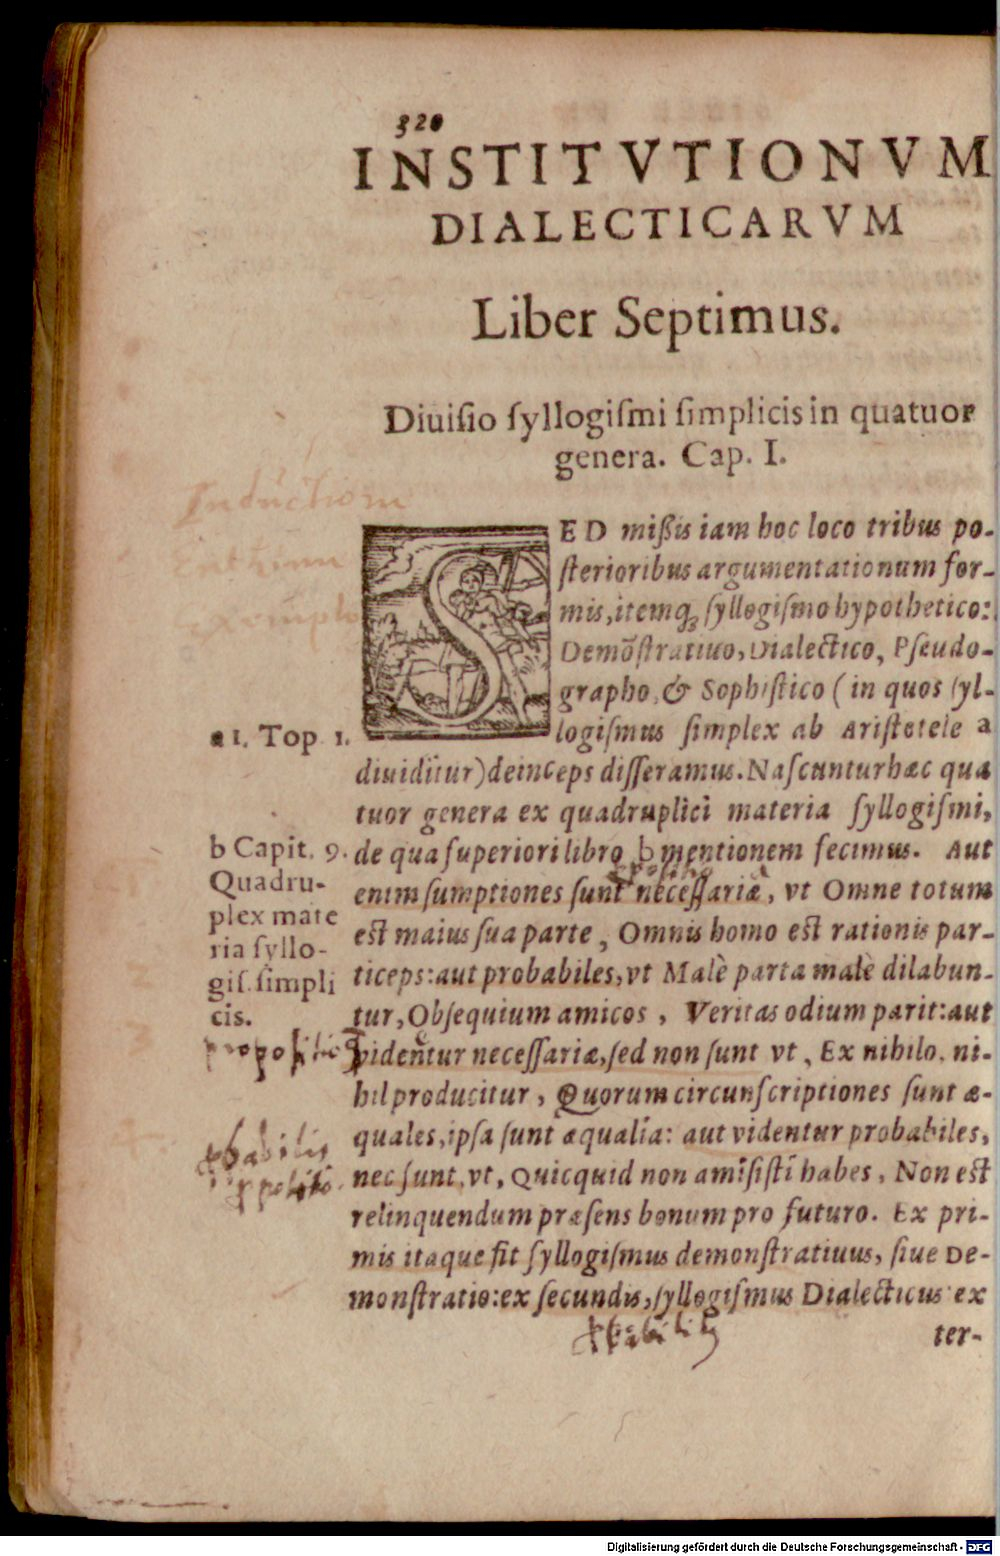 320
INSTITVTIONVM
DIALECTICARVM
Liber Septimus.
Diuiſio ſyllogiſmi ſimplicis in quatuor
genera. Cap. I.
Inductiom
SED miſſis iam hoc loco tribus po-
ſterioribus argumentationum for-
mis, itemq́ꝫ ſyllogiſmo hypothetico:
Demõſtratiuo, Dialectico, Pſeudo-
grapho, & Sophiſtico (in quos ſyl-
logiſmus ſimplex ab Ariſtotele a
diuiditur) deinceps diſſeramus. Naſcuntur hæc qua
tuor genera ex quadruplici materia ſyllogiſmi,
de qua ſuperiori libro b mentionem fecimus. Aut
enim ſumptiones ſunt neceſſariæ, vt Omne totum
eſt maius ſua parte, Omnis homo eſt rationis par-
ticeps: aut probabiles, vt Malè parta malè dilabun-
tur, Obſequium amicos, Veritas odium parit: aut
videntur neceſſariæ, ſed non ſunt vt, Ex nihilo, ni-
hil producitur, Quorum circunſcriptiones ſunt æ-
quales, ipſa ſunt æqualia: aut videntur probabiles,
nec ſunt, vt, Quicquid non amiſiſti habes, Non eſt
relinquendum præſens bonum pro futuro. Ex pri-
mis itaque fit ſyllogiſmus demonſtratiuus, ſiue De-
monſtratio: ex ſecundis, ſyllogiſmus Dialecticus: ex
ter-
a 1. Top. 1.
b Capit. 9.
Quadru-
plex mate
ria ſyllo-
giſ. ſimpli
cis.